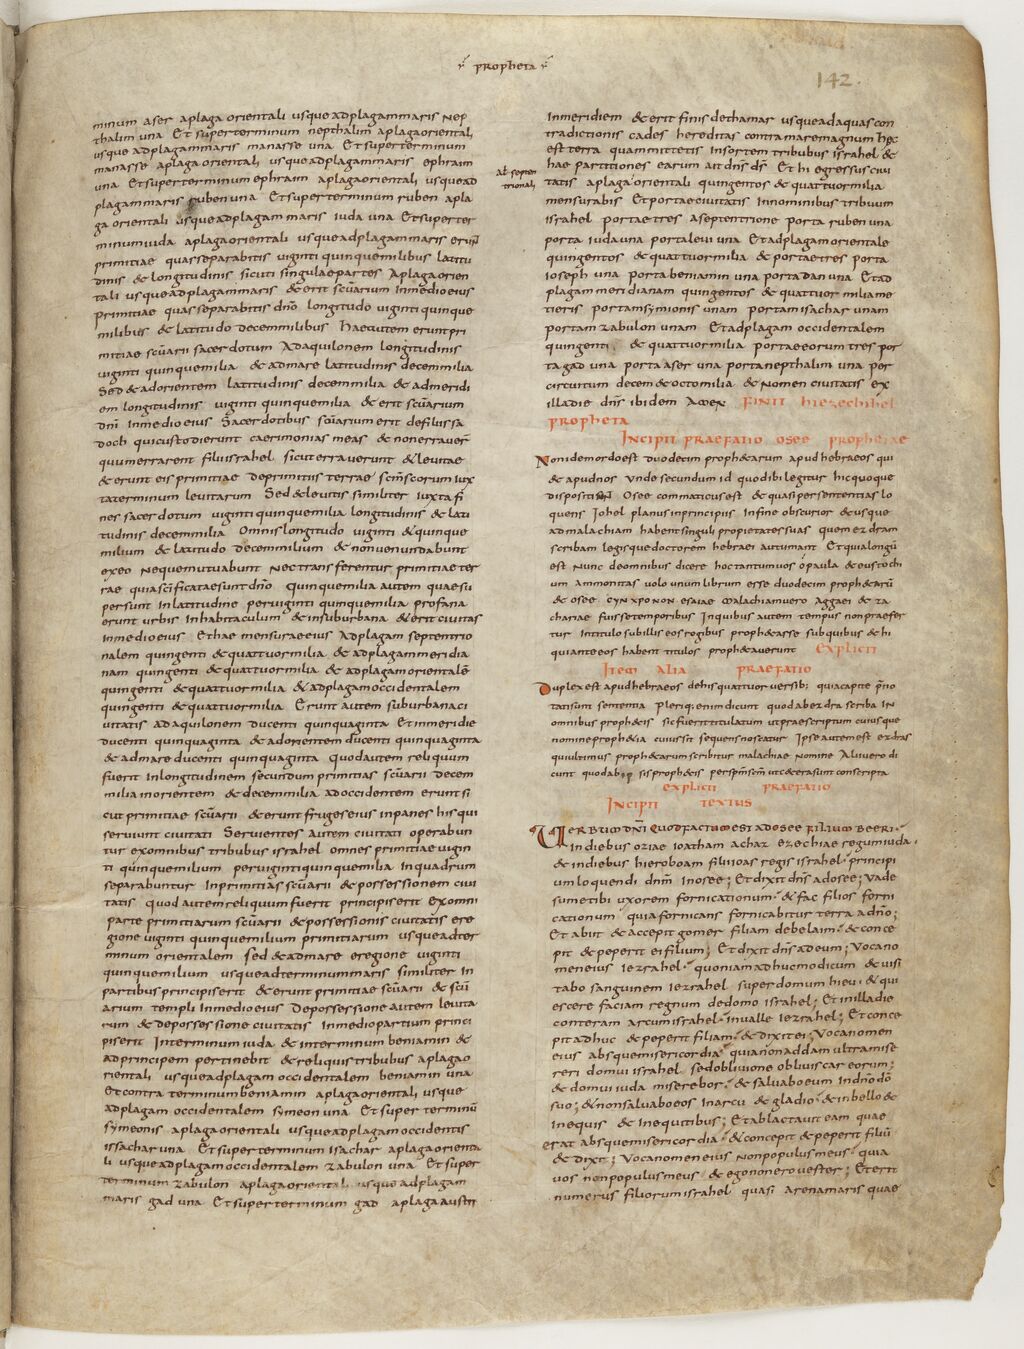 propheta
142.
minum aser aplaga orientali usque ad plagam maris nep
thalim una Et super terminum nepthalim aplaga orientali
usque ad plagam maris manasse una Et super terminum
manasse aplaga orientali usque ad plagam maris ephraim
una Et super terminum ephraim aplaga orientali usque ad
plagam maris ruben una Et super terminum ruben apla
ga orientali usque ad plagam maris iuda una Et super ter
minum iuda aplaga orientali usque ad plagam maris erun
primitiae quas separabitis viginti quinque milibus latitu
dinis & longitudinis sicuti singulae partes Aplaga orien
tali usque ad plagam maris & erit scuarium in medio eius
primitiae quas separabitis dno longitudo viginti quinque
milibus & latitudo decem milibus Hae autem erunt pri
mitiae scuarii sacerdotum Ad aquilonem longitudinis
viginti quinque milia & ad mare latitudinis decem milia
Sed & ad orientem latitudinis decem milia & ad meridi
em longitudinis viginti quinque milia & erit scuarium
dni in medio eius Sacerdotibus scuarium erit de filiis sa
doch qui custodierunt caerimonias meas & non erraver
quum errarent filii israhel sicut erraverunt & levitae
& erunt eis primitiae de primitiis terrae scm scorum iux
ta terminum levitarum Sed & levitis similiter iuxta fi
nes sacerdotum viginti quinque milia longitudinis & lati
tudinis decem milia Omnis longitudo viginti & quinque
milium & latitudo decem milium & non venundabunt
ex eo Neque mutabunt Nec transferentur primitiae ter
rae quia scificatae sunt dno Quinque milia autem quae su
persunt In latitudine per viginti quinque milia profana
erunt urbis In habitaculum & in suburbana & erit civitas
in medio eius Et hae mensurae eius Ad plagam septentrio
nalem quingenti & quattuor milia & ad plagam meridia
nam quingenti & quattuor milia & ad plagam orientale
quingenti & quattuor milia & ad plagam occidentalem
quingenti & quattuor milia Erunt autem suburbana ci
vitatis ad aquilonem ducenti quinquaginta Et in meridie
ducenti quinquaginta & ad orientem ducenti quinquaginta
& ad mare ducenti quinquaginta Quod autem reliquum
fuerit In longitudinem secundum primitias scuarii decem
milia in orientem & decem milia ad occidentem erunt si
cut primitiae scuarii & erunt fruges eius in panes his qui
serviunt civitati Servientes autem civitati operabun
tur ex omnibus tribubus israhel omnes primitiae vigin
ti quinque milium per viginti quinque milia In quadrum
separabuntur In primitias scuarii & possessionem civi
tatis quod autem reliquum fuerit principis erit ex omni
parte primitiarum scuarii & possessionis civitatis e re
gione viginti quinque milium primitiarum usque ad ter
minum orientalem sed & ad mare e regione viginti
quinque milium usque ad terminum maris similiter in
partibus principis erit & erunt primitiae scuarii & scu
arium templi In medio eius De possessione autem levita
rum & de possessione civitatis In medio partium princi
pis erit Inter minum iuda & inter minum beniamin &
ad principem pertinebit & reliquis tribubus aplaga o
rientali usque ad plagam occidentalem beniamin una
Et contra terminum beniamin aplaga orientali usque
ad plagam occidentalem symeon una Et super terminu
symeonis aplaga orientali usque ad plagam occidentis
issachar una Et super terminum isachar aplaga orienta
li usque ad plagam occidentalem zabulon una Et super
terminum zabulon aplaga orientali usque ad plagam
maris gad una Et super terminum gad aplaga austri
Ab septen
trionali
In meridiem & erit finis de thamar usque ad aquas con
tradictionis cades hereditas contra mare magnum hec
est terra quam mittetis In sortem tribubus israhel &
hae partitiones earum ait dns ds Et hi egressus civi
tatis aplaga orientali quingentos & quattuor milia
mensurabis Et portae civitatis In nominibus tribuum
israhel portae tres a septentrione porta ruben una
porta iuda una porta levi una Et ad plagam orientale
quingentos & quattuor milia & portae tres porta
ioseph una porta beniamin una porta dan una Et ad
plagam meridianam quingentos & quattuor milia me
tieris portam symionis unam portam isachar unam
portam zabulon unam Et ad plagam occidentalem
quingenti & quattuor milia portae eorum tres por
ta gad una porta aser una porta nepthalim una per
circuitum decem & octo milia & Nomen civitatis ex
illa die dns ibidem Amen FINIT hiezechihel
propheta
Incipit praefatio osee prophetae
Non idem ordo est duodecim proph&arum apud hebraeos qui
& apud nos Unde secundum id quod ibi legitur hic quoque
dispositi sunt Osee commaticus est & quasi per sententias lo
quens Iohel planus in principiis In fine obscurior & usque
ad malachiam habent singuli propietates suas quem ezdram
scribam legisque doctorem hebraei autumant Et quia longu
est Nunc de omnibus dicere hoc tantum vos o paula & eustochi
um ammonitas volo unum librum esse duodecim proph&aru
& osee cynxronon esaiae Malachiam vero Aggaei & za
chariae fuisse temporibus In quibus autem tempus non praefer
tur In titulo sub illis eos regibus proph&asse sub quibus & hi
qui ante eos habent titulos proph&averunt Explicit
Item alia praefatio
Duplex est apud hebraeos de his quattuor versib; quia capite pno
tatis una sententia Plerique enim dicunt quod ab ezdra scriba In
omnibus proph&is sic fuerit titulatum ut praescriptum cuiusque
nomine proph&ia cuius sit sequens noscatur Ipse autem est ezdras
qui ultimus proph&arum scribitur malachiae Nomine Alii vero di
cunt quod ab ipsis proph&is per spm scm ut c&era sunt conscripta
explicit praefatio
Incipit textus
VERBUM DNI QUOD FACTUM EST AD OSEE FILIUM BEERI
In diebus oziae ioatham achaz ezechiae regum iuda
& in diebus hieroboam filii ioas regis israhel principi
um loquendi dnm In osee; Et dixit dns ad osee; Vade
sume tibi uxorem fornicationum & fac filios forni
cationum quia fornicans fornicabitur terra a dno;
Et abiit & accepit gomer filiam debelaim & conce
pit & peperit ei filium; Et dixit dns ad eum; Voca no
men eius iezrahel quoniam adhuc modicum & visi
tabo sanguinem iezrahel super domum hieu & qui
escere faciam regnum de domo israhel; Et in illa die
conteram arcum israhel in valle iezrahel; Et conce
pit adhuc & peperit filiam & dixit ei; Voca nomen
eius absque misericordia quia non addam ultra mise
reri domui israhel sed oblivione obliviscar eorum;
& domui iuda miserebor & salvabo eum In dno do
suo; & non salvabo eos In arcu & gladio & in bello &
in equis & in equitibus; Et ablactavit eam quae
erat absque misericordia & concepit & peperit filiu
& dixit; Voca nomen eius Non populus meus quia
vos non populus meus & ego non ero vester; Et erit
numerus filiorum israhel quasi arena maris quae